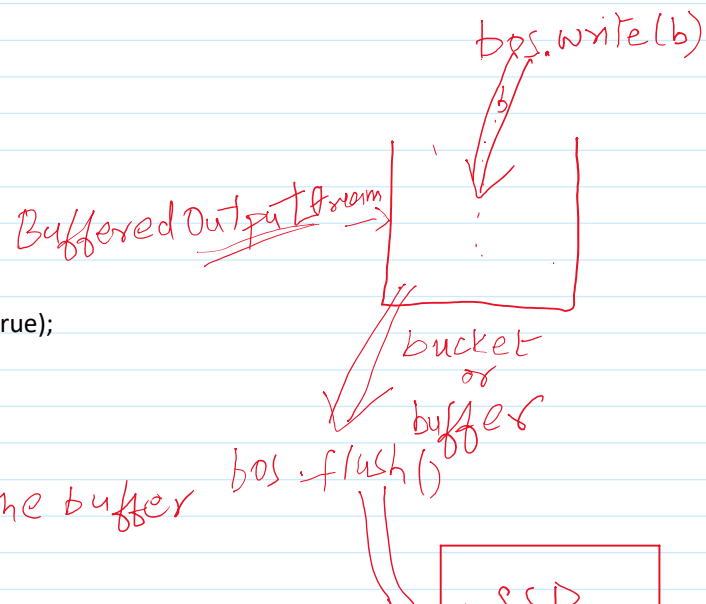 bos.write(b)
b
BufferedOutputStream
rue);
bucket
or
buffer
bos.flush()
he buffer
SSD